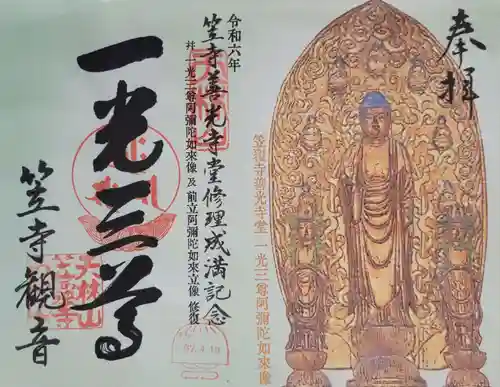 奉拝
笠覆寺善光寺堂 一光三尊阿彌陀如來像
令和六年
笠寺善光寺堂修理成満記念
并 一光三尊阿彌陀如來像 及 前立阿彌陀如來立像 修復
一光三尊
笠寺觀音
大林山